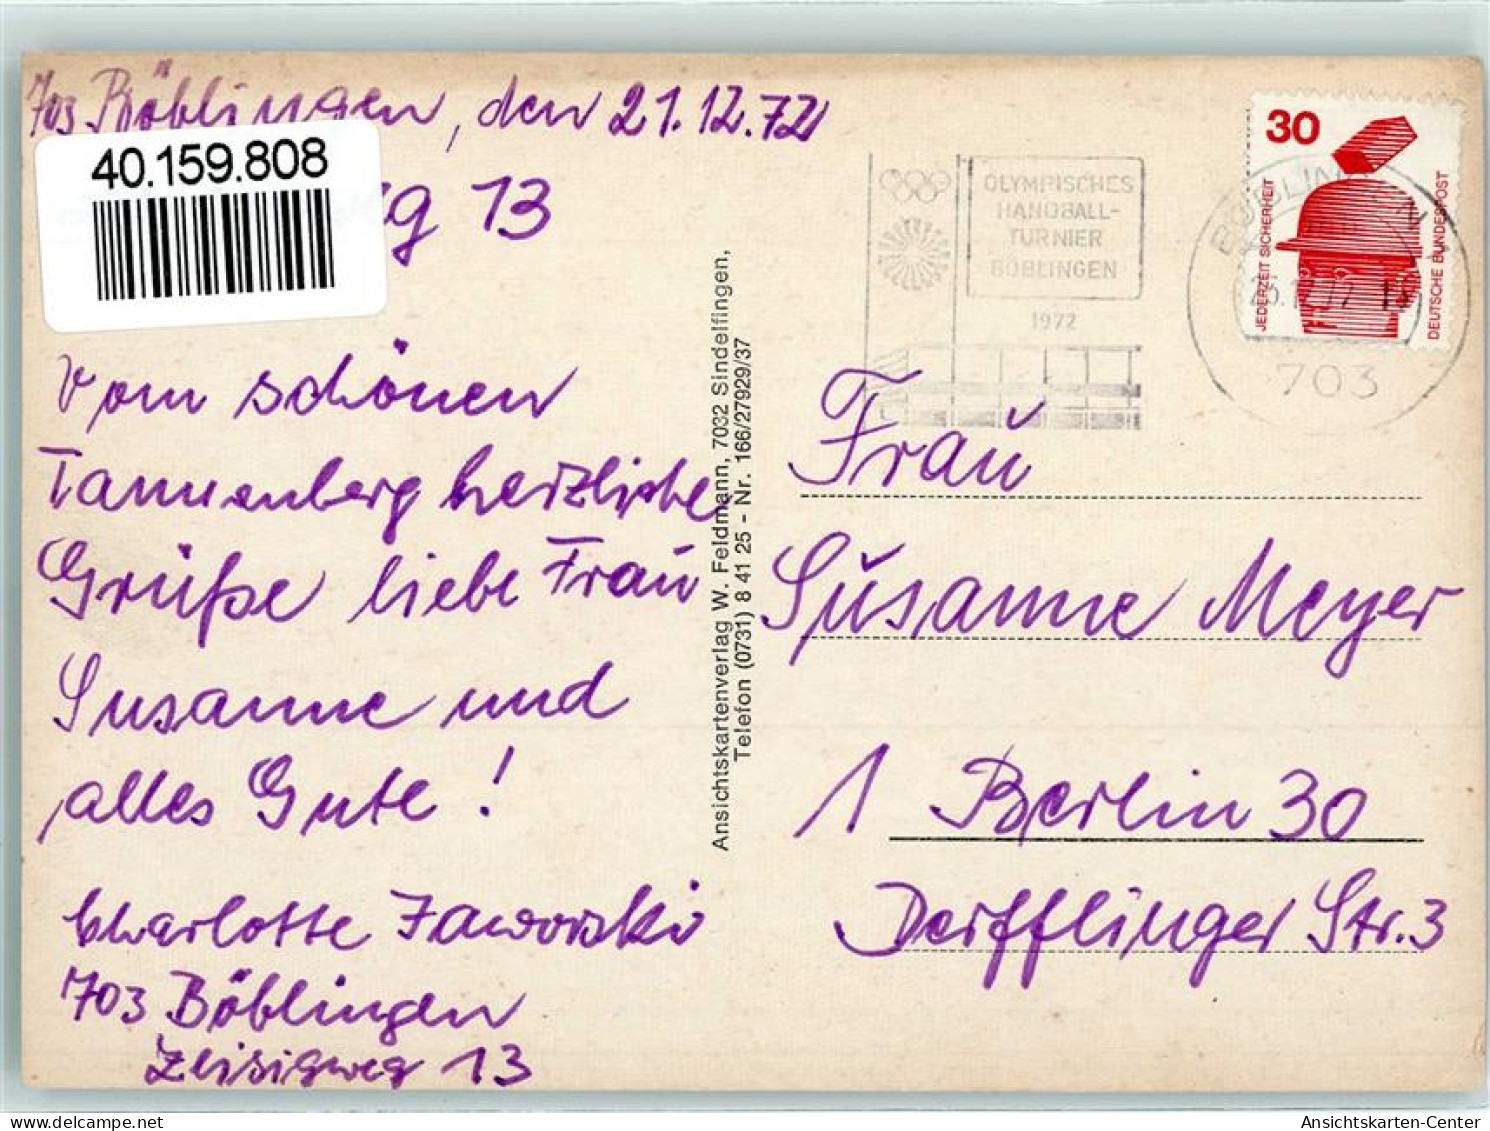 703 Böblingen, den 21.12.72
40.159.808
eg 13
Vom schönen
Tannenberg herzliche
Grüße liebe Frau
Susanne und
alles Gute!
Charlotte Jaworski
703 Böblingen
Zeisigweg 13
Ansichtskartenverlag W. Feldmann, 7032 Sindelfingen,
Telefon (0731) 8 41 25 - Nr. 166/27929/37
OLYMPISCHES
HANDBALL-
TURNIER
BÖBLINGEN
1972
BÖBLINGEN
703
30
JEDERZEIT SICHERHEIT
DEUTSCHE BUNDESPOST
Frau
Susanne Meyer
1 Berlin 30
Derfflinger Str. 3
Ansichtskarten-Center